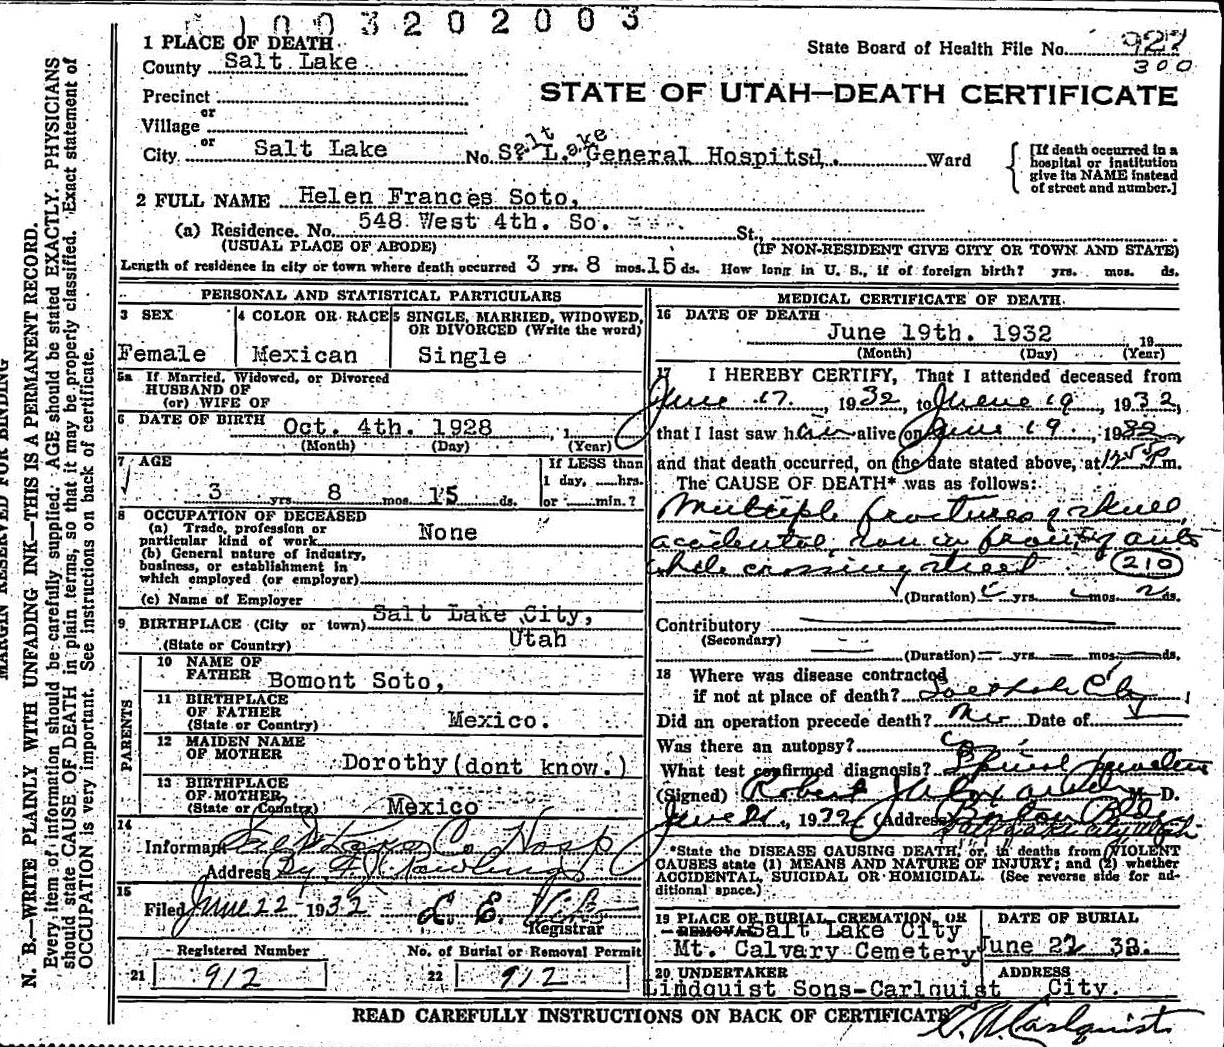 1003202003
1 PLACE OF DEATH
County Salt Lake
State Board of Health File No. 927
300
Precinct
or
Village
or
City Salt Lake No. S. L. General Hospitsl. Ward
Salt Lake
STATE OF UTAH—DEATH CERTIFICATE
[If death occurred in a
hospital or institution
give its NAME instead
of street and number.]
2 FULL NAME Helen Frances Soto,
(a) Residence. No. 548 West 4th. So. St.,
(USUAL PLACE OF ABODE) (IF NON-RESIDENT GIVE CITY OR TOWN AND STATE)
Length of residence in city or town where death occurred 3 yrs. 8 mos. 15 ds. How long in U. S., if of foreign birth? yrs. mos. ds.
MARGIN RESERVED FOR BINDING
N. B.—WRITE PLAINLY WITH UNFADING INK—THIS IS A PERMANENT RECORD.
Every item of information should be carefully supplied. AGE should be stated EXACTLY. PHYSICIANS
should state CAUSE OF DEATH in plain terms, so that it may be properly classified. Exact statement of
OCCUPATION is very important. See instructions on back of certificate.
PERSONAL AND STATISTICAL PARTICULARS
3 SEX
Female
4 COLOR OR RACE
Mexican
5 SINGLE, MARRIED, WIDOWED,
OR DIVORCED (Write the word)
Single
5a If Married, Widowed, or Divorced
HUSBAND OF
(or) WIFE OF
6 DATE OF BIRTH Oct. 4th. 1928, 1
(Month) (Day) (Year)
7 AGE
3 yrs. 8 mos. 15 ds.
If LESS than
1 day, hrs.
or min.?
8 OCCUPATION OF DECEASED
(a) Trade, profession or
particular kind of work None
(b) General nature of industry,
business, or establishment in
which employed (or employer)
(c) Name of Employer
9 BIRTHPLACE (City or town) Salt Lake City,
(State or Country) Utah
PARENTS
10 NAME OF
FATHER Bomont Soto,
11 BIRTHPLACE
OF FATHER
(State or Country) Mexico.
12 MAIDEN NAME
OF MOTHER Dorothy (dont know.)
13 BIRTHPLACE
OF MOTHER
(State or Country) Mexico
14
Informant Salt Lake Co. Hosp
Address By
15
Filed June 22 1932 L. E.
Registrar
Registered Number
21 912
No. of Burial or Removal Permit
22 912
MEDICAL CERTIFICATE OF DEATH
16 DATE OF DEATH
June 19th. 1932 19
(Month) (Day) (Year)
17 I HEREBY CERTIFY, That I attended deceased from
June 17. 1932, to June 19, 1932,
that I last saw h alive on June 19, 1932
and that death occurred, on the date stated above, at m.
The CAUSE OF DEATH* was as follows:
Multiple fractures of skull,
accidental, ran in front of auto
while crossing street 210
(Duration) yrs. mos. 2 ds.
Contributory
(Secondary)
(Duration) yrs. mos. ds.
18 Where was disease contracted
if not at place of death? Salt Lake City
Did an operation precede death? No Date of
Was there an autopsy?
What test confirmed diagnosis? Spinal
(Signed) Robert M. D.
June 21, 1932 (Address)
Salt Lake City Utah
*State the DISEASE CAUSING DEATH, or, in deaths from VIOLENT
CAUSES state (1) MEANS AND NATURE OF INJURY; and (2) whether
ACCIDENTAL, SUICIDAL OR HOMICIDAL. (See reverse side for ad-
ditional space.)
19 PLACE OF BURIAL, CREMATION, OR
REMOVAL Salt Lake City
Mt. Calvary Cemetery
DATE OF BURIAL
June 22 32.
20 UNDERTAKER
Lindquist Sons-Carlquist
ADDRESS
City.
READ CAREFULLY INSTRUCTIONS ON BACK OF CERTIFICATE
Carlquist